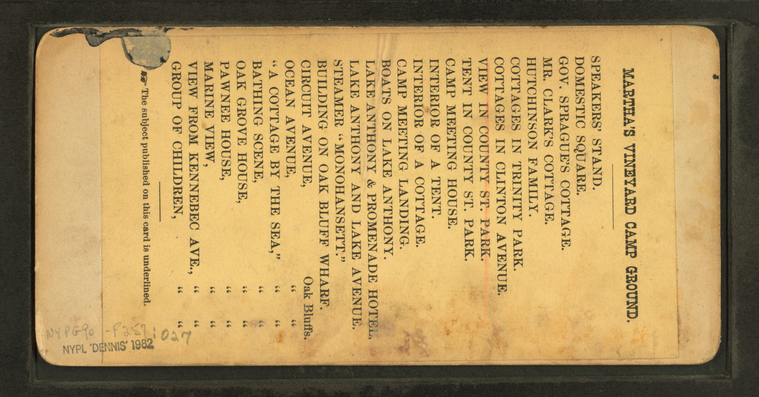 MARTHA'S VINEYARD CAMP GROUND.
SPEAKERS' STAND.
DOMESTIC SQUARE.
GOV. SPRAGUE'S COTTAGE.
MR. CLARK'S COTTAGE.
HUTCHINSON FAMILY.
COTTAGES IN TRINITY PARK.
COTTAGES IN CLINTON AVENUE.
VIEW IN COUNTY ST. PARK.
TENT IN COUNTY ST. PARK.
CAMP MEETING HOUSE.
INTERIOR OF A TENT.
INTERIOR OF A COTTAGE.
CAMP MEETING LANDING.
BOATS ON LAKE ANTHONY.
LAKE ANTHONY & PROMENADE HOTEL.
LAKE ANTHONY AND LAKE AVENUE.
STEAMER "MONOHANSETT."
BUILDING ON OAK BLUFF WHARF.
CIRCUIT AVENUE, Oak Bluffs.
OCEAN AVENUE, " "
"A COTTAGE BY THE SEA," " "
BATHING SCENE, " "
OAK GROVE HOUSE, " "
PAWNEE HOUSE, " "
MARINE VIEW, " "
VIEW FROM KENNEBEC AVE., " "
GROUP OF CHILDREN, " "
☞ The subject published on this card is underlined.
NYPG90-F259:027
NYPL 'DENNIS' 1982